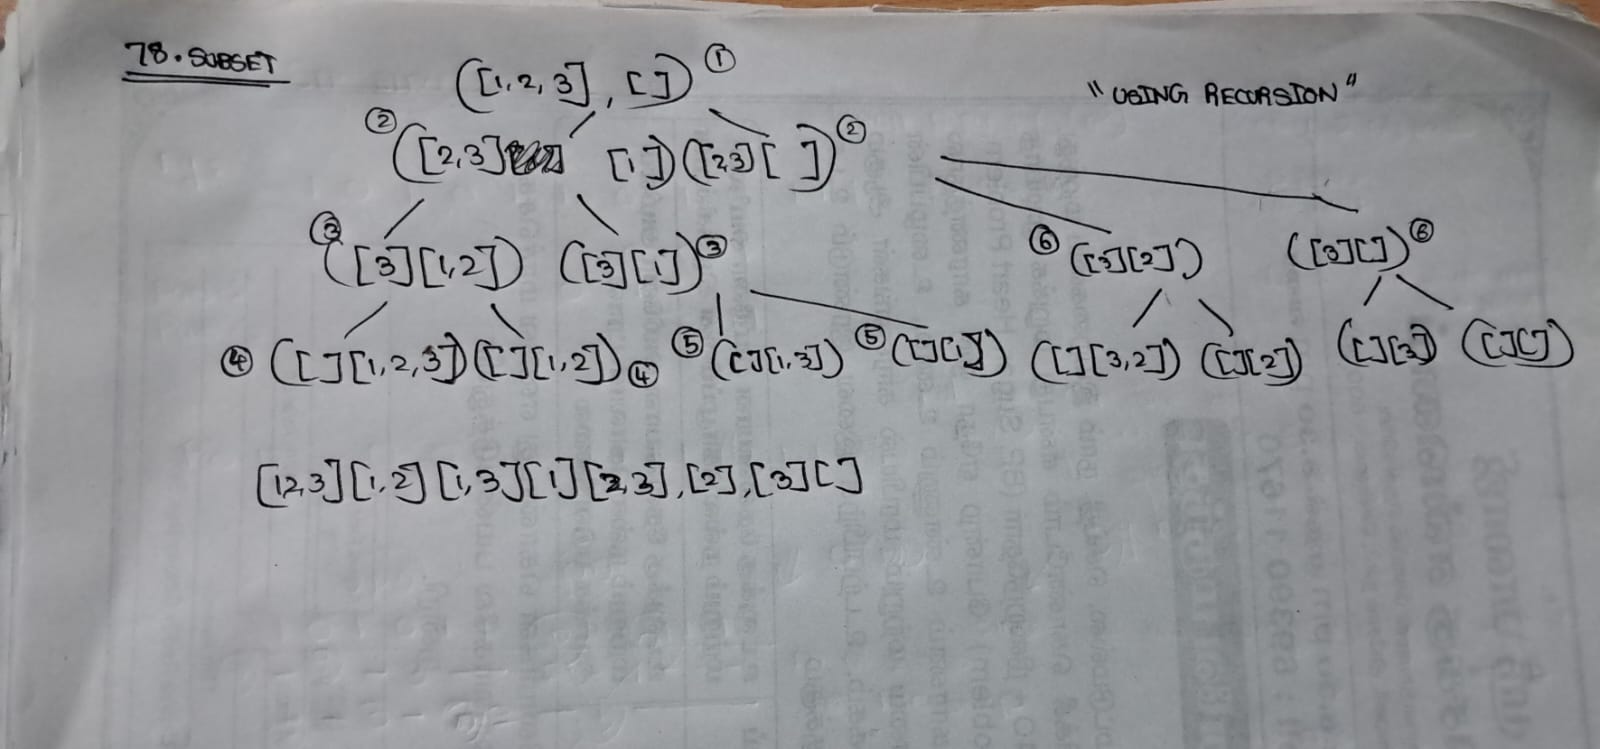 78. SUBSET
([1,2,3], []) ①
"USING RECURSION"
② ([2,3] [1]) ([2,3] [ ]) ②
③ ([3][1,2]) ([3][1]) ③ ⑥ ([3][2]) ([3][]) ⑥
④ ([][1,2,3]) ([][1,2]) ④ ⑤ ([][1,3]) ⑤ ([][1]) ([][3,2]) ([][2]) ([][3]) ([][])
[12,3][1,2][1,3][1][2,3],[2],[3][]